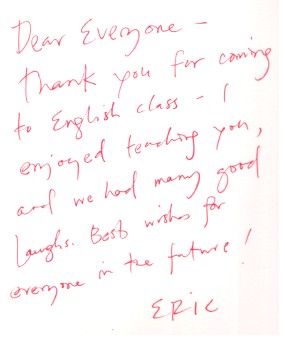 Dear Everyone -
Thank you for coming
to English class - I
enjoyed teaching you,
and we had many good
laughs. Best wishes for
everyone in the future!
ERIC